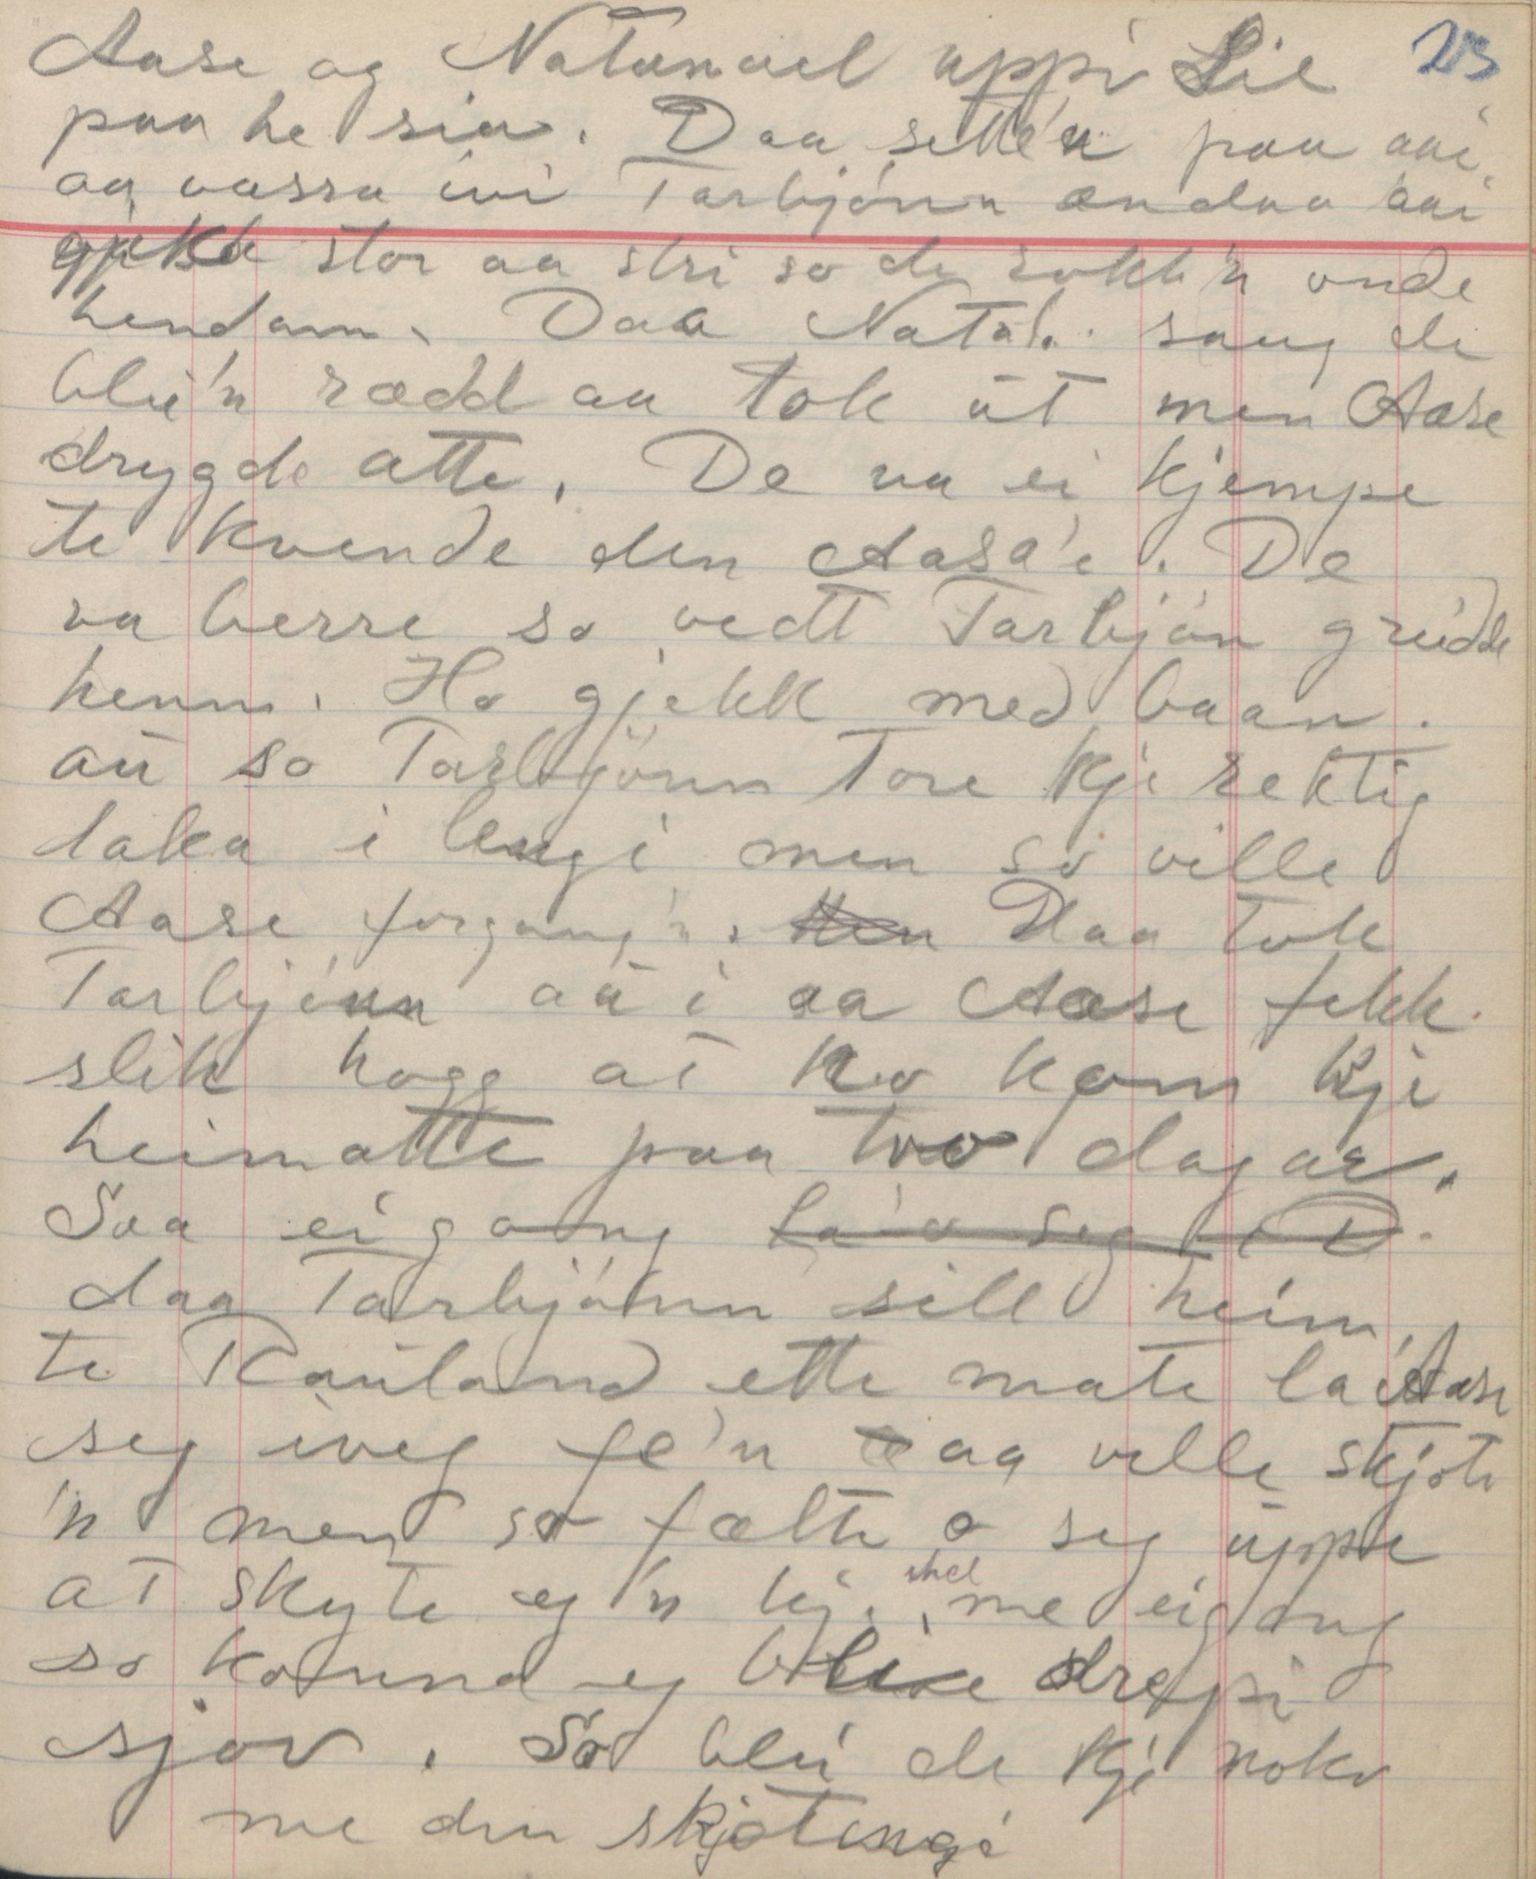 Aase og Natanael uppi Lie 23
paa he sia. Daa sette'n paa aai
aa vassa ivi Tarbjónn endaa aai
gjekk stor aa stri so de rokk'n onde
hendann. Daa Natal. saag de
blei'n rædd aa tok út men Aase
drygde atte. De va ei kjempe
te kvende den Aasa'e. De
va berre so vedt Tarbjón greidde
henni. Ho gjekk med baan.
aú so Tarbjónn Tore kje rektig
taka i lengi men so ville
Aase forgang'n. Daa tok
Tarbjónn aú i aa Aase fekk
slik hogg at ho kom kje
heimatte paa two dagar.
Saa ei gong la'o seg i D.
daa Tarbjónn sill heim
te Rauland ette mate la Aase
seg iveg fe'n aa ville skjote
'n men so fælte o seg úppe
at skyte eg'n kje ihel me ei gong
so konnd eg blie drepi
sjøv. So blei de kje noko
me den skjotingi